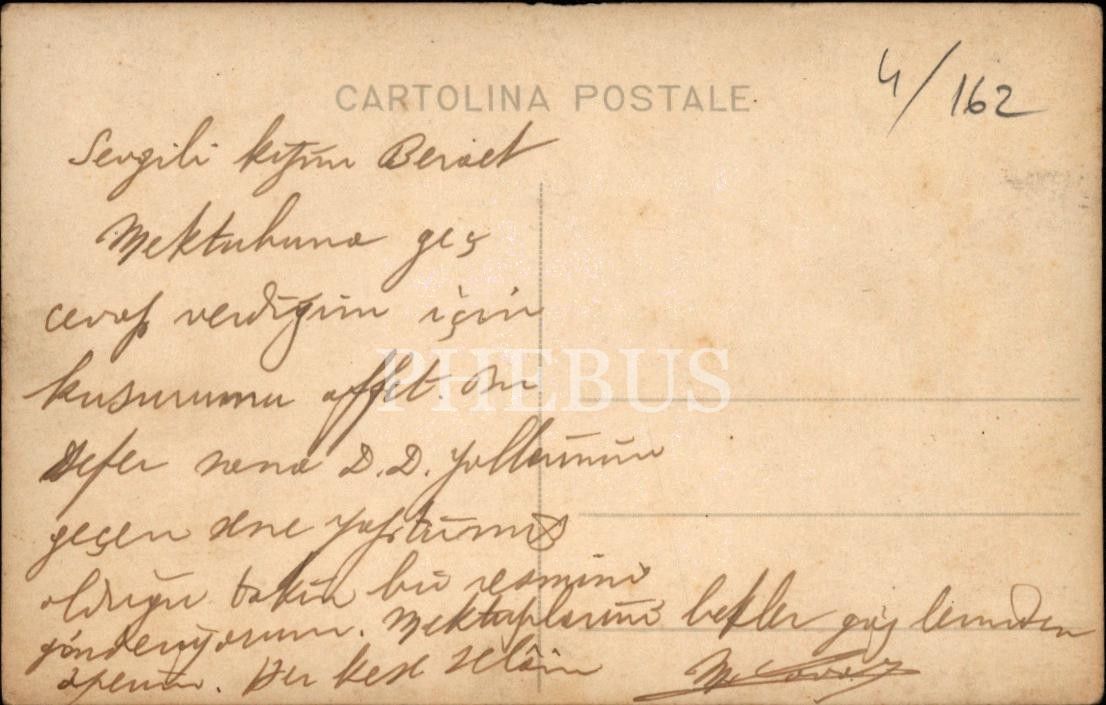 CARTOLINA POSTALE
4/162
Sevgili kızım Beraet
Mektubuna geç
cevap verdiğim için
kusurumu affet. Bu
defer sana D.D. yollarının
geçen sene yaptırmış
olduğu takın bir resmini
gönderiyorum. Mektuplarını bekler gözlerinden
öperim. Her kese selâm
PHEBUS